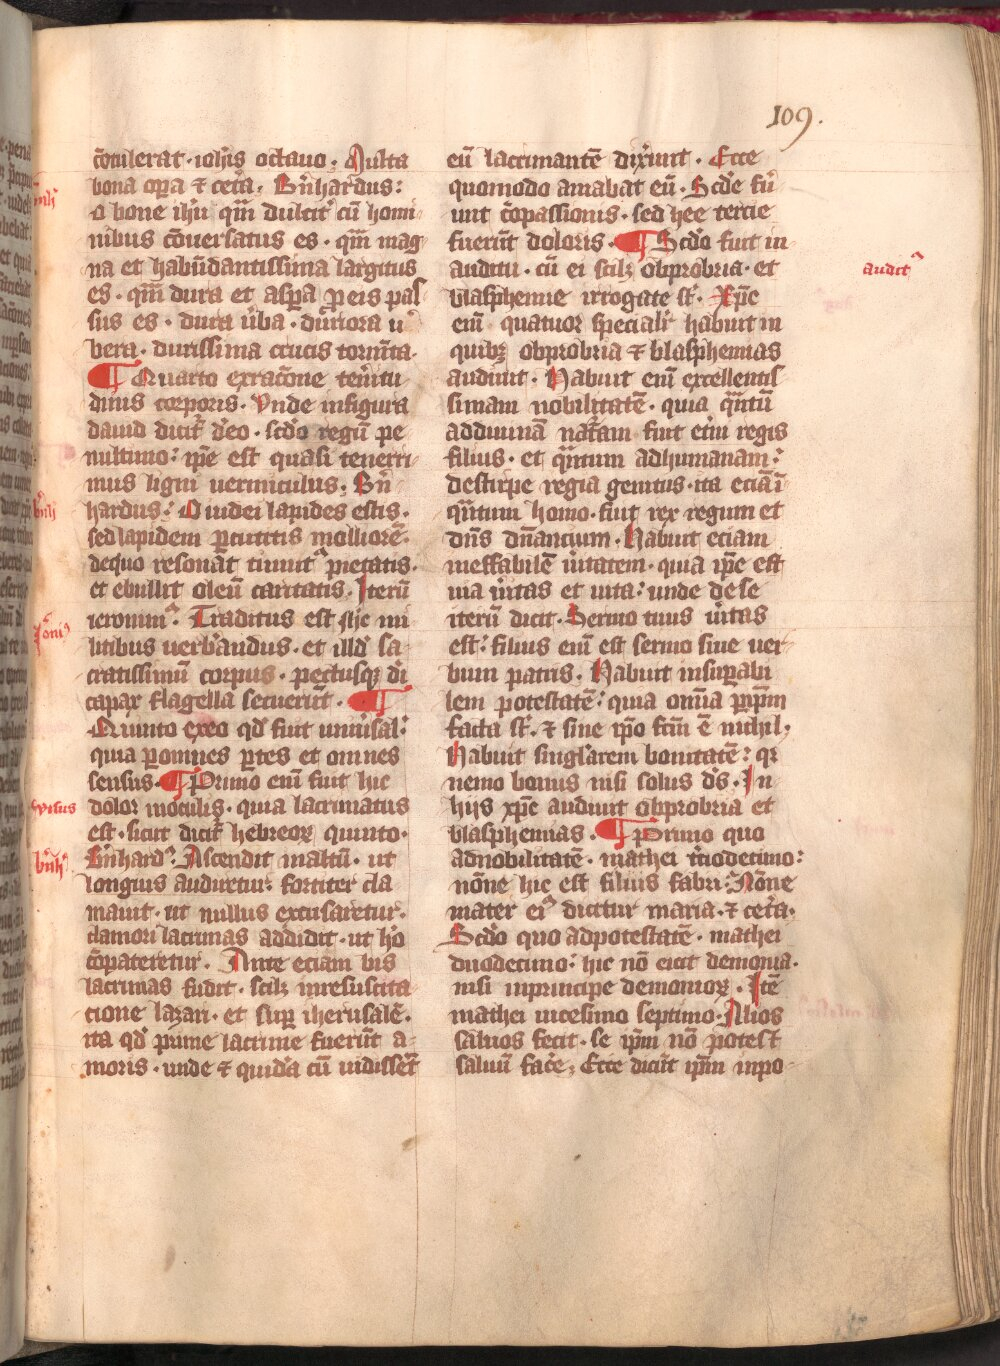 109.
c̄tulerat · ioh̄is octauo · Multa
bona oꝑa ⁊ cet̾a · Bn̄hardus:
o bone ih̄u qm̄ dulcit̾ cū homi-
nibus cōuersatus es · qm̄ mag
na et habūdantissima largitus
es · qm̄ dura et asꝑa ꝓ eis pas
sus es · dura u̾ba · duriora u̾
bera · durissima crucis torm̄ta ·
¶ Quarto ex racōne ten̾itu
dinis corporis · Vnde in figura
dauid dicit̾ de eo · scd̾o regū pe
nultimo: ip̄e est quasi tenerri-
mus ligni uermiculus · Bn̄
hardus: O iudei lapides estis ·
sed lapidem ꝑcutitis molliorē ·
de quo resonat tinnit̾ pietatis ·
et ebullit oleū caritatis · Iterū
ieronim̾ · Traditus est ih̄c mi
litibus uerb̾andus · et illd̾ sa
cratissimū corpus · pectusqꝫ di
capax flagella secuerūt · ¶
Quinto ex eo qd̾ fuit uniu̾sal̾
quia ꝑ omnes ꝑtes et omnes
sensus · ¶ Primo eni fuit hic
dolor in oculis · quia lacrimatus
est · sicut dicit̾ hebreoꝝ quinto ·
Bn̄hard̾ · Ascendit in altū · ut
longius audiretur: fortiter cla
mauit · ut nullus excusaretur ·
clamori lacrimas addidit · ut ho̾
cōpateretur · Ante eciam bis
lacrimas fudit · scilꝫ in resuscita
cione lazari · et suꝑ iherusalē ·
ita qd̾ prime lacrime fuerūt a-
moris · unde ⁊ quidā cū uidissēt
eū lacrimantē dixerunt · Ecce
quomodo amabat eū · Scd̾e fu̾
unt cōpassionis · sed hee tercie
fuerūt doloris · ¶ Scd̾o fuit in
auditu · cū ei scilꝫ obprobria · et
blasphemie irrogate st̄ · Xp̄c
eni quatuor specialit̾ habuit in
quibꝫ obprobria ⁊ blasphemias
audiuit · Habuit eni excellentis
simam nobilitatē · quia qn̄tū
ad diuinā nat̾am fuit et̾ni regis
filius · et qn̄tum ad humanam:
de stirpe regia genitus · ita eciā ī
qn̄tum homo · fuit rex regum et
dn̄s dn̄ancium · Habuit eciam
ineffabilē u̾itatem · quia ip̄e est
uia u̾itas et uita: unde de se
iterū dicit · Sermo tuus u̾itas
est: filius eni est sermo siue uer
bum patris · Habuit insuꝑabi
lem potestatē: quia omīa ꝑ ip̄m
facta st̄ · ⁊ sine ip̄o fc̄m ē nichil ·
Habuit singl̾arem bonitatē: qr
nemo bonus nisi solus ds̄ · In
hijs xp̄c audiuit obprobria et
blasphemias · ¶ Primo quo
ad nobilitatē · mathei t̾ciodecimo:
nōne hic est filius fabri: Nōne
mater ei̾ dicitur maria · ⁊ cet̾a ·
Scd̾o quo ad potestatē · mathei
duodecimo: hic nō eicit demonia ·
nisi in principe demonioꝝ · Itē
mathei uicesimo septimo · Alios
saluos fecit · se ip̄m nō potest
saluū fac̾e · Ecce dicūt ip̄m inpo-
audit̾
visus
bn̄h̾